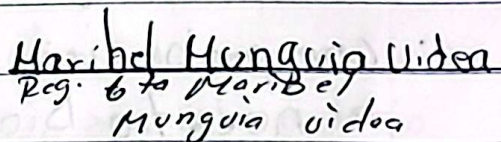 Maribel Munguia Videa
Reg. 6ta MariBel
Munguia videa